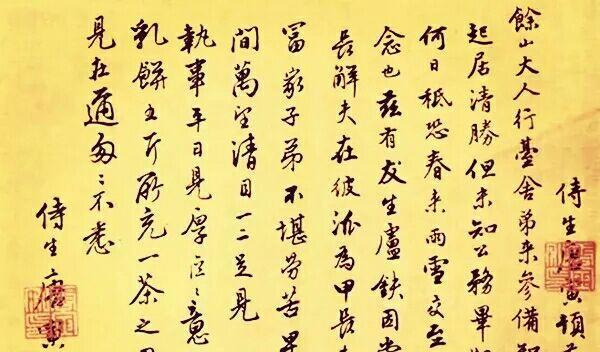 侍生唐寅頓
餘山大人行臺舍弟來參備
起居清勝但未知公務畢
何日秪恐春來雨雪交至
念也茲有友生盧鈇因當
長解夫在彼泒為甲長
富家子弟不堪勞苦
間萬望清目一二足見
執事平日見厚區〻意
乳餅五斤所充一茶之
見在邇匆〻不悉
侍生唐寅